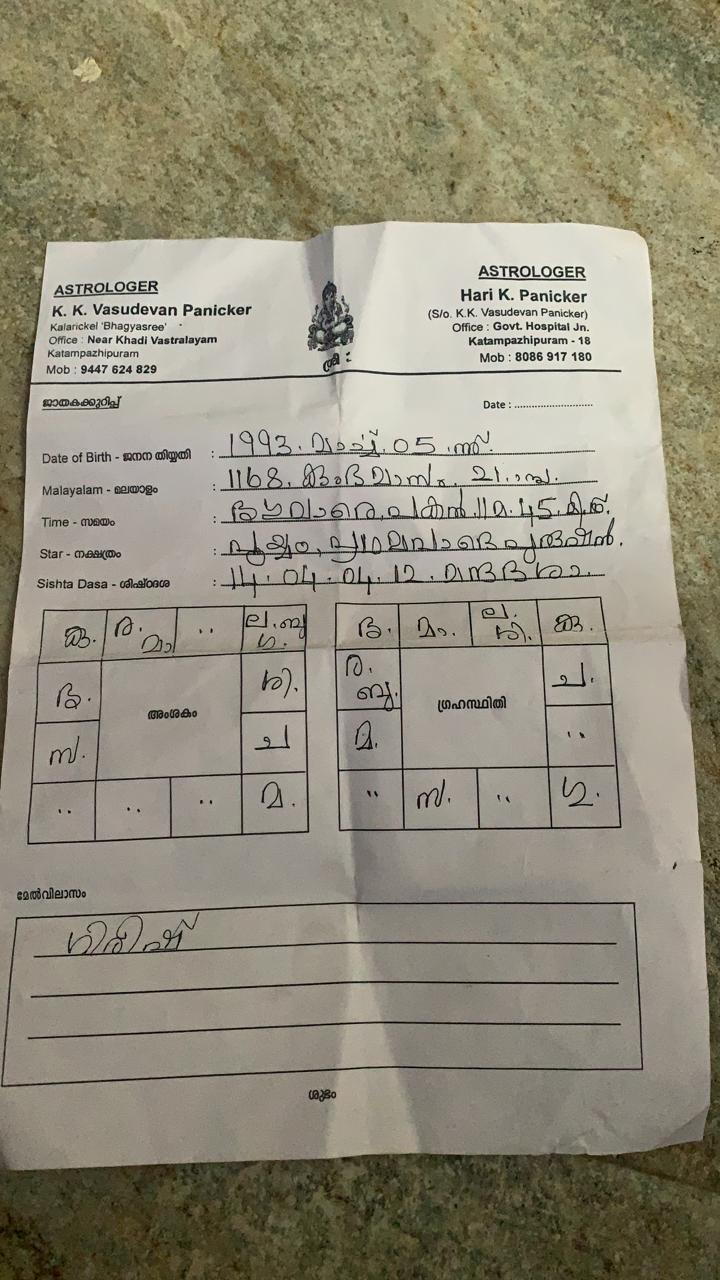 ASTROLOGER
K. K. Vasudevan Panicker
Kalarickel 'Bhagyasree'
Office : Near Khadi Vastralayam
Katampazhipuram
Mob : 9447 624 829
ASTROLOGER
Hari K. Panicker
(S/o. K.K. Vasudevan Panicker)
Office : Govt. Hospital Jn.
Katampazhipuram - 18
Mob : 8086 917 180
ശ്രീ :
ജാതകക്കുറിപ്പ്
Date : ............................
Date of Birth - ജനന തിയ്യതി : 1993. മാർച്ച്. 05. ന്ന്.
Malayalam - മലയാളം : 1168. കുംഭമാസം. 21.
Time - സമയം : പകൽ. 11 മ. 45. മി.
Star - നക്ഷത്രം : പൂയ്യം,
Sishta Dasa - ശിഷ്ടദശ : 14. 04. 04. 12. മന്ദദശാ.
കു. ര. മാ .. ല. ബു ഗു.
ശു. ശി.
സ. ച
.. .. .. മ.
അംശകം
ശു. മാ. ല. ശി. കു.
ര. ബു. ച.
മ. ..
.. സ. .. ഗു.
ഗ്രഹസ്ഥിതി
മേൽവിലാസം
ഗിരീഷ്
ശുഭം